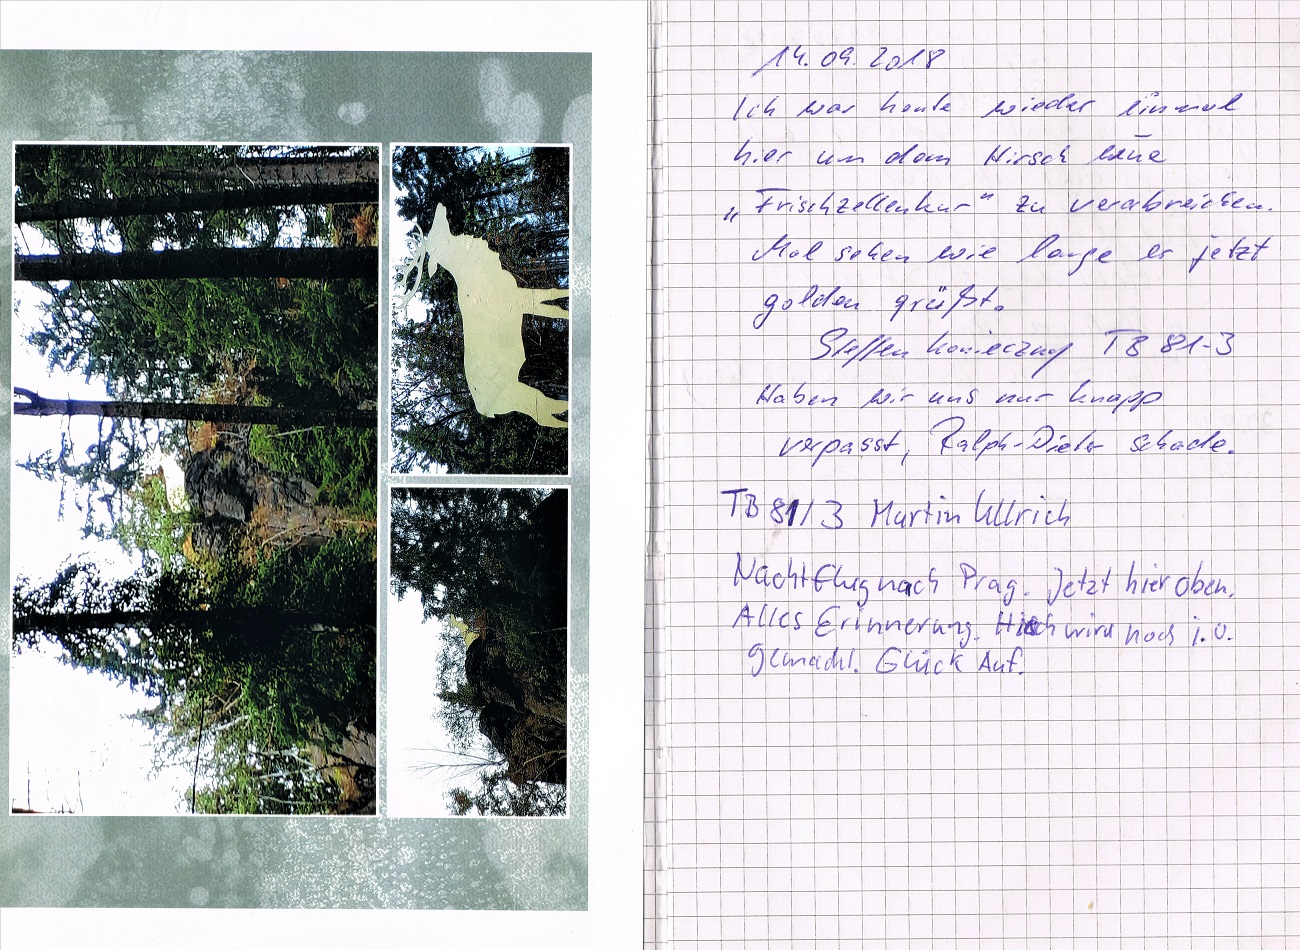 14.09.2018
Ich war heute wieder einmal
hier um dem Hirsch eine
„Frischzellenkur“ zu verabreichen.
Mal sehen wie lange er jetzt
golden grüßt.
Steffen Konieczny TB 81-3
Haben wir uns nur knapp
verpasst, Ralph-Dieter schade.
TB 81/3 Martin Ullrich
Nachtflug nach Prag. Jetzt hier oben.
Alles Erinnerung. Hirsch wird noch i.O.
gemacht. Glück Auf.